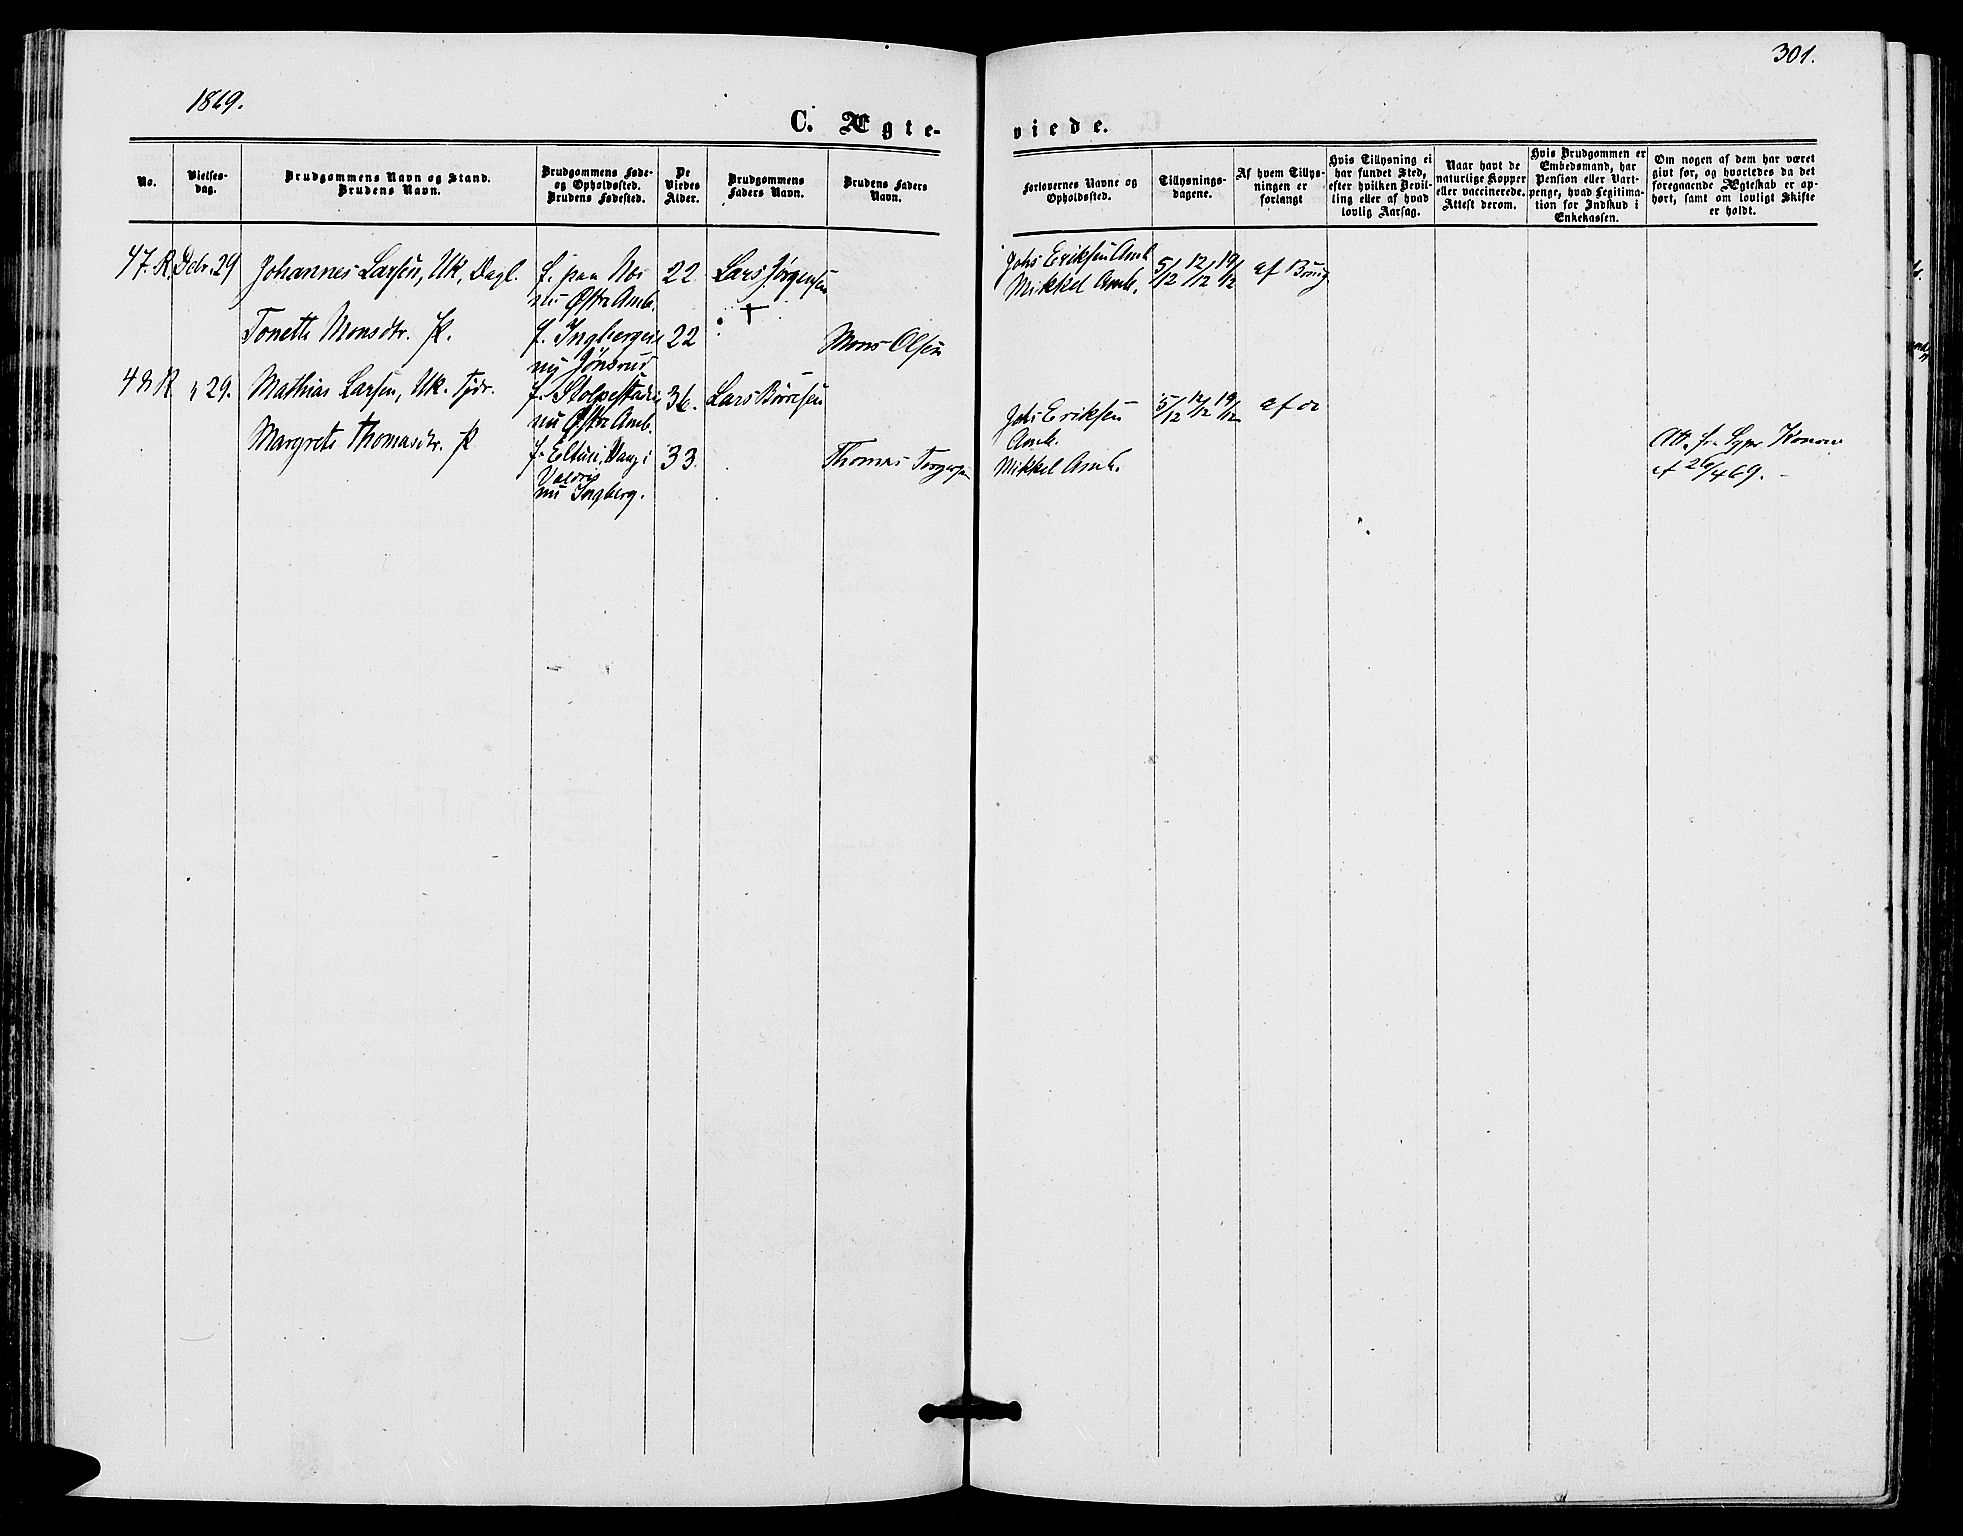 1869.
301.
C. Ægte-
viede.
No.
Vielses-
dag.
Brudgommens Navn og Stand.
Brudens Navn.
Brudgommens Føde-
og Opholdssted.
Brudens Fødested.
De
Viedes
Alder.
Brudgommens
Faders Navn.
Brudens Faders
Navn.
Forlovernes Navne og
Opholdssted.
Tillysnings-
dagene.
Af hvem Tillys-
ningen er
forlangt
Hvis Tillysning ei
har fundet Sted,
efter hvilken Bevil-
ling eller af hvad
lovlig Aarsag.
Naar havt de
naturlige Kopper
eller vaccinerede.
Attest derom.
Hvis Brudgommen er
Embedsmand, har
Pension eller Vart-
penge, hvad Legitima-
tion for Indskud i
Enkekassen.
Om nogen af dem har været
givt før, og hvorledes da det
foregaaende Ægteskab er op-
hørt, samt om lovligt Skifte
er holdt.
47. R. Debr. 29 Johannes Larsen, Uk, Dagl. f. paa Næs 22 Lars Jørgensen Johs Eriksen Amb. 5/12 12/12 19/12 af Brudg
nu Østre Amb. + Mikkel Amb.
Tonette Monsdtr. P. f. Ingbergeie 22 Mons Olsen
nu Jønsrud
48 R " 29. Mathias Larsen, Uk. Tjdr. f. Stolpestadeie 36. Lars Børresen Johs Eriksen 5/12 12/12 19/12 af do
nu Østre Amb. Amb.
Margrete Thomasdtr. P f. Eltun i Vang i 33 Thomas Torgersen Mikkel Amb. Att. fr. Sgpr Konow
Valdres af 26/4 69.
nu Ingberg.